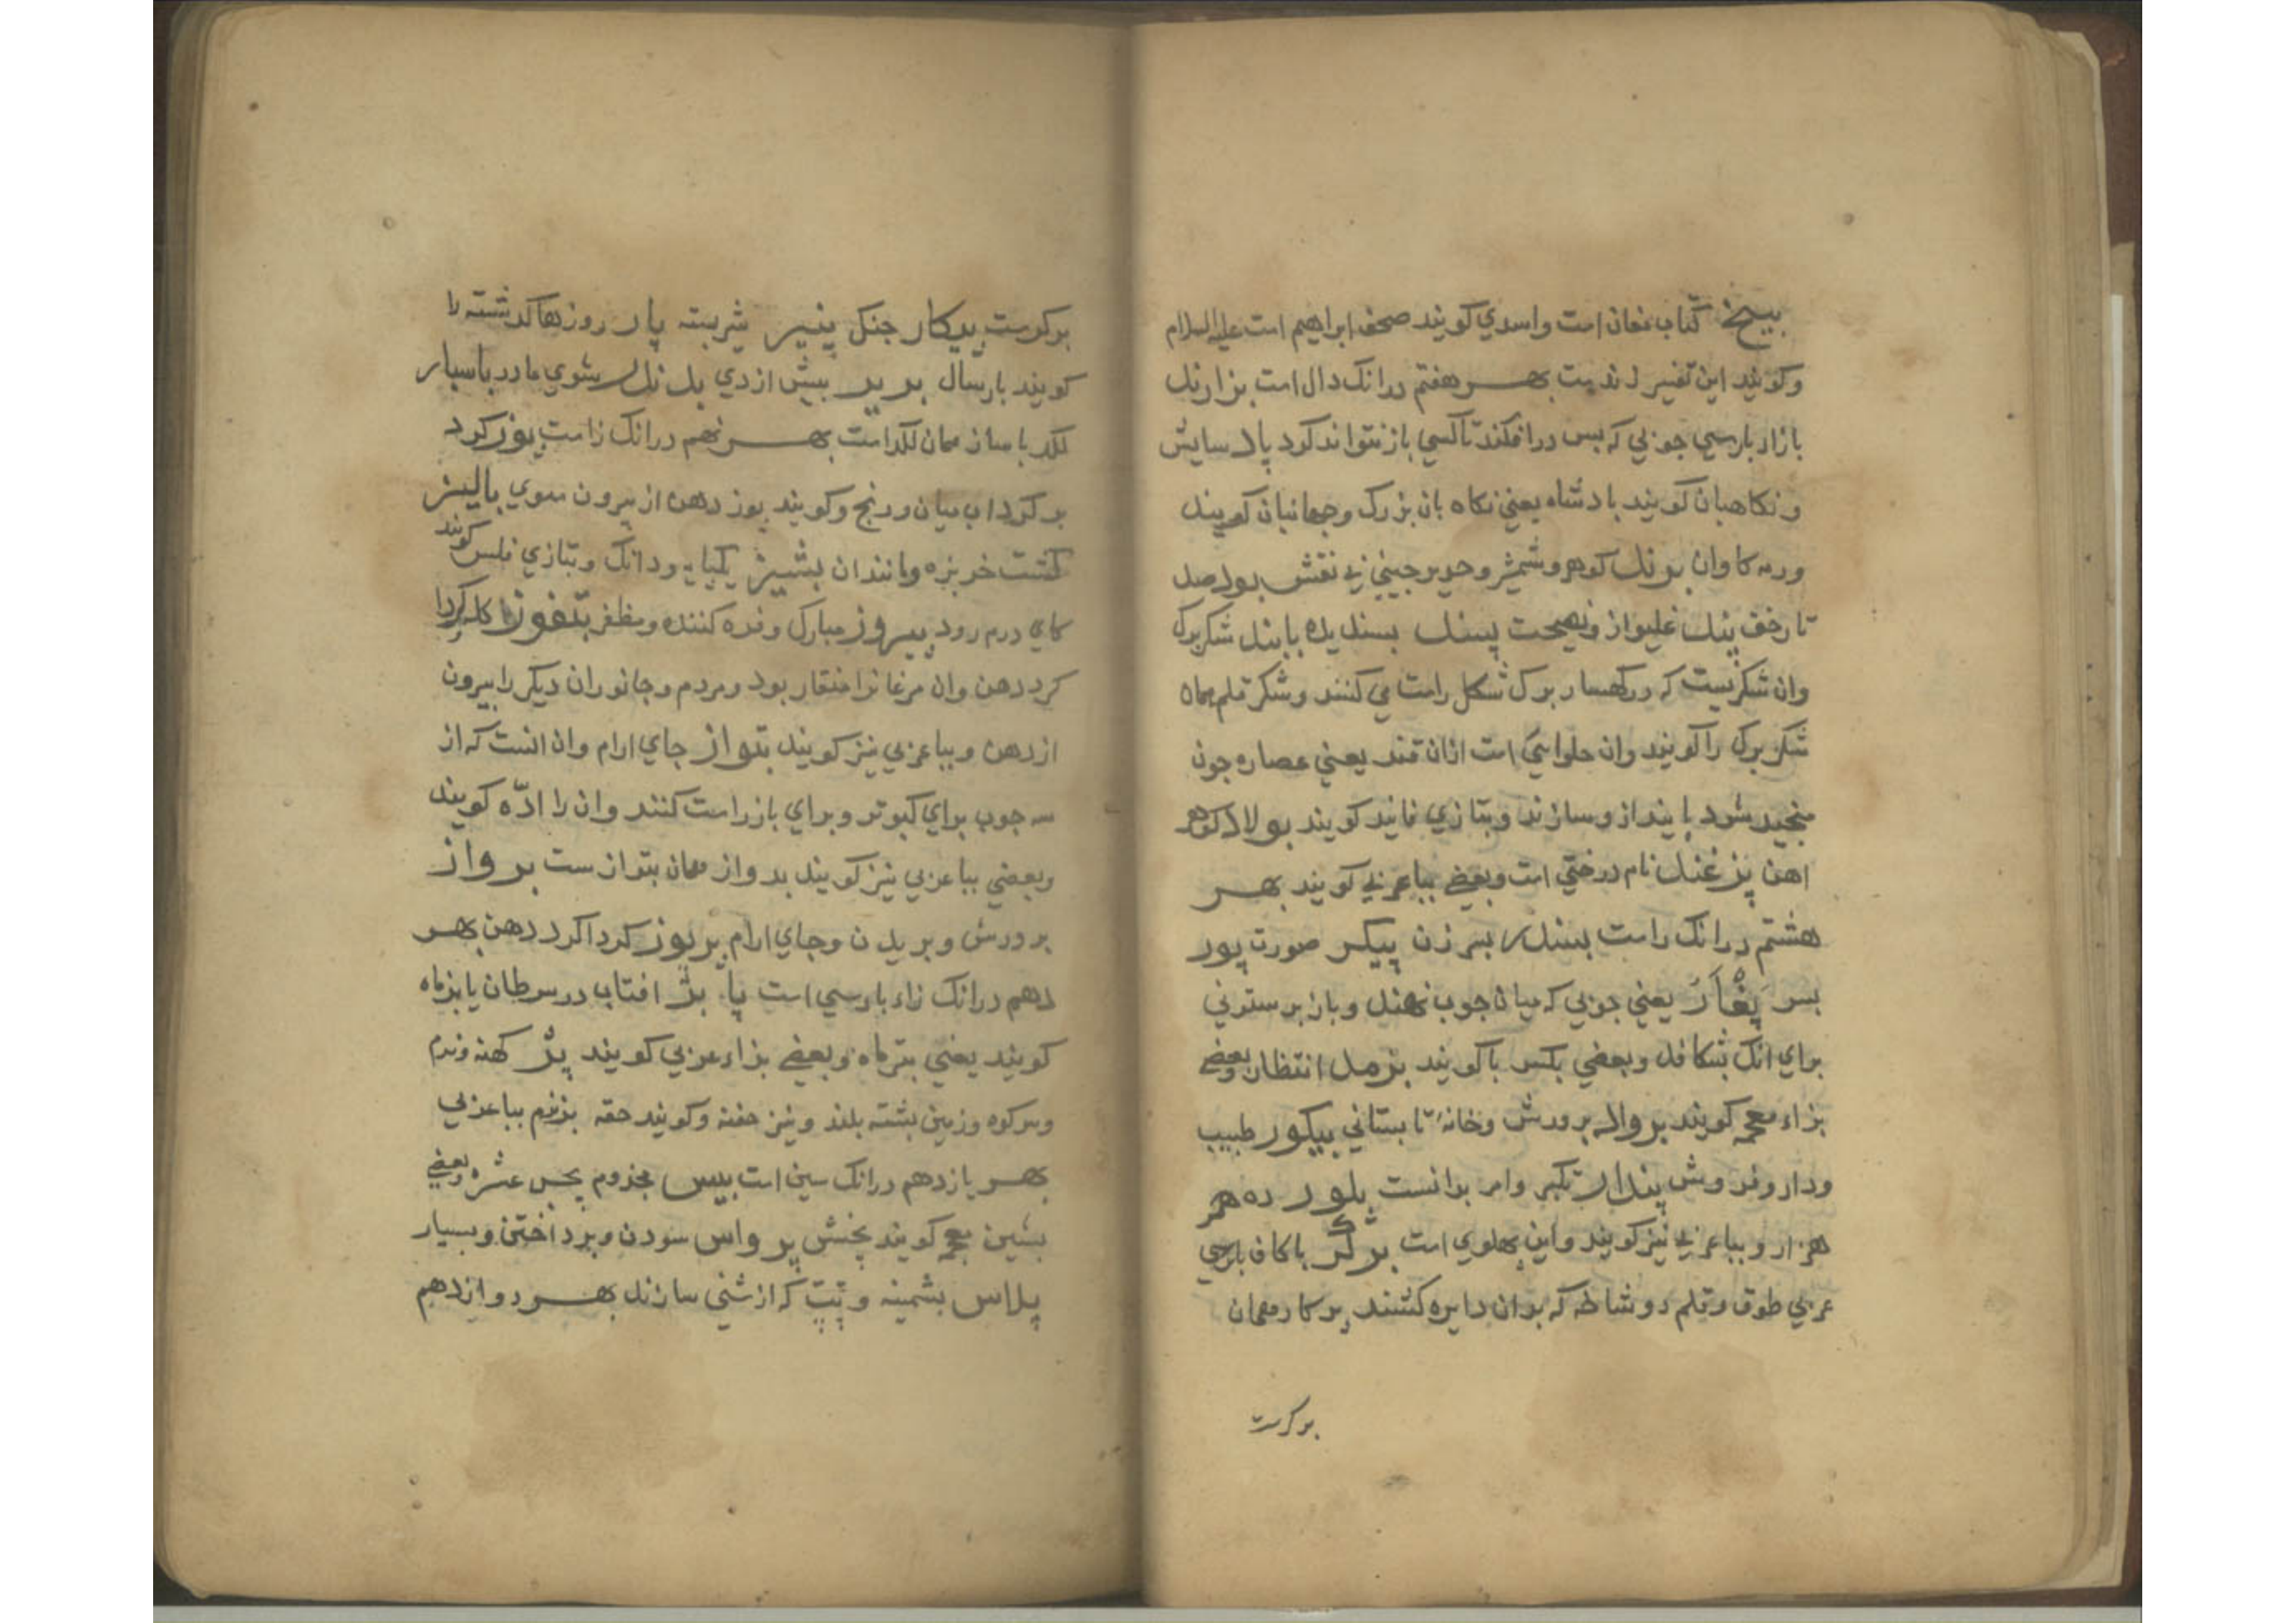 کتاب مغان است واسدي کویند صحف ابراهیم است علیه السلام
وکویند این تفسیر زندیت بهـر هفتم درانک دال است
بازاد بارسي جوبي که بس درافکند تا کسي بازنتواند کود پاد سایش
ونکاهبان کویند بادشاه یعني نکاه بان بزرک وجهانبان کویند
ورمه کاوان پرند کوهر وشمشیر وحریر جیني بی نقش بود
غلیواز ونصیحت پسند بسندیده پابند شکر برک
وان شکریست که در کهسار برک شکل راست مي کنند وشکر قلم همان
شکر برک را کویند وان حلوایي است ازان قند یعني عصاره جون
منجمد شود وسازند وبتازي فانید کویند بولاد کوهر
اهن پژغند نام درختي است وبعضي بباء عربي کویند بهـر
هشتم درانک راست بسندر بسر زن پیکر صورت پور
بسر پغاز یعني جوبي که میان جوب نهند وباز بر ستوني
براي انک بشکافد وبعضي بکسر با کویند انتظار وبعضي
بزاء معجمه کویند بروار برورش وخانهٔ تابستاني بیکور طبیب
ودارو فروش پندار تکبر وامر بدانست بلور ده
هزار وبباء عربي نیز کویند واین بهلوي است برگر باکاف بارسي
عربي طوق وقلم دو شاخه که بدان دایره کشند پرکار همان
برکرست
برکرست پیکار جنک پنیر شیر بسته پار روزها کذشته را
کویند بارسال پریر بیش ازدي پدندر شوي مادر باسبار
لکد باساز همان لکد است بهـر نهم درانک زاست پوز کرد
بر کرد اب میان ورنج وکویند پوز دهن از بیرون سوي بالیز
کشت خربزه ومانندان بشیز یکبایه ودانک وبتازي فلس کویند
کاي درم رود پیروز مبارک وفره کننده ومظفر بتفوز کله کردا
کرد دهن وان مرغانرا منقار بود ومردم وجانوران دیکر را بیرون
ازدهن وبباء عربي نیز کویند بتواز جاي ارام وان انست که از
سه جوب براي کبوتر وبراي باز راست کنند وان را ادّه کویند
وبعضي بباء عربي نیز کویند بدواز همان بتواز ست برواز
برورش وبریدن وجاي ارام پربوز کرداکرد دهن بهـر
دهم درانک زاء بارسي است افتاب در سرطان یا بزماه
کویند یعني تیرماه وبعضي بزاء عربي کویند پژ کهنه ونرم
وسر کوه وزمین بشته بلند ونیز جفنه وکویند حقه بژنزم بباء عربي
بهـر یازدهم درانک سین است بیس مجذوم وبعضي
بشین معجمه کویند بخش پرواس سودن وبرداختن وبسیار
پلاس بشمینه وتپت که از شني سازند بهـر دوازدهم